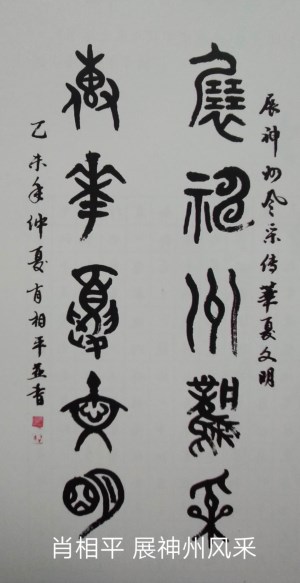 展神州风采传華夏文明
展神州風采
傳華夏文明
乙未年仲夏肖相平并书
肖相平 展神州风采